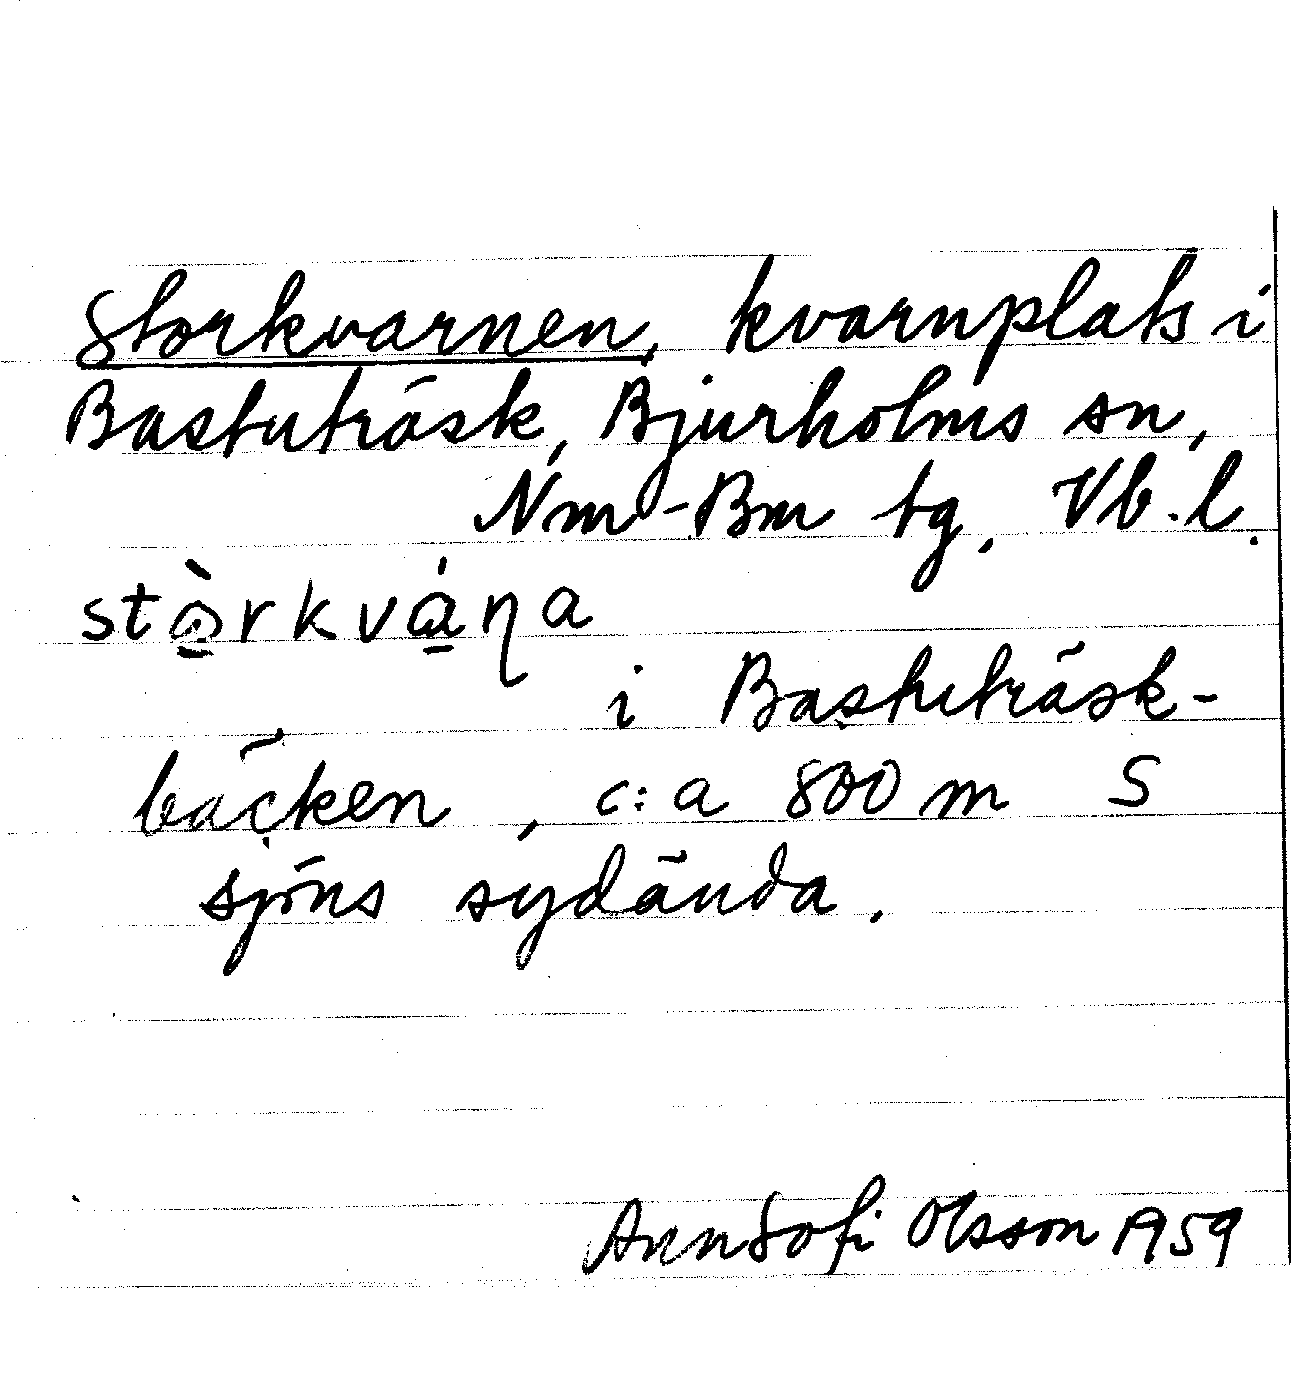 Storkvarnen, kvarnplats i
Bastuträsk, Bjurholms sn,
Nm-Bm tg. Vb.l.
stɷ̀rkvɑ́ƞa
i Bastuträsk-
bäcken, c:a 800 m S
sjöns sydända.
AnnSofi Olsson 1959